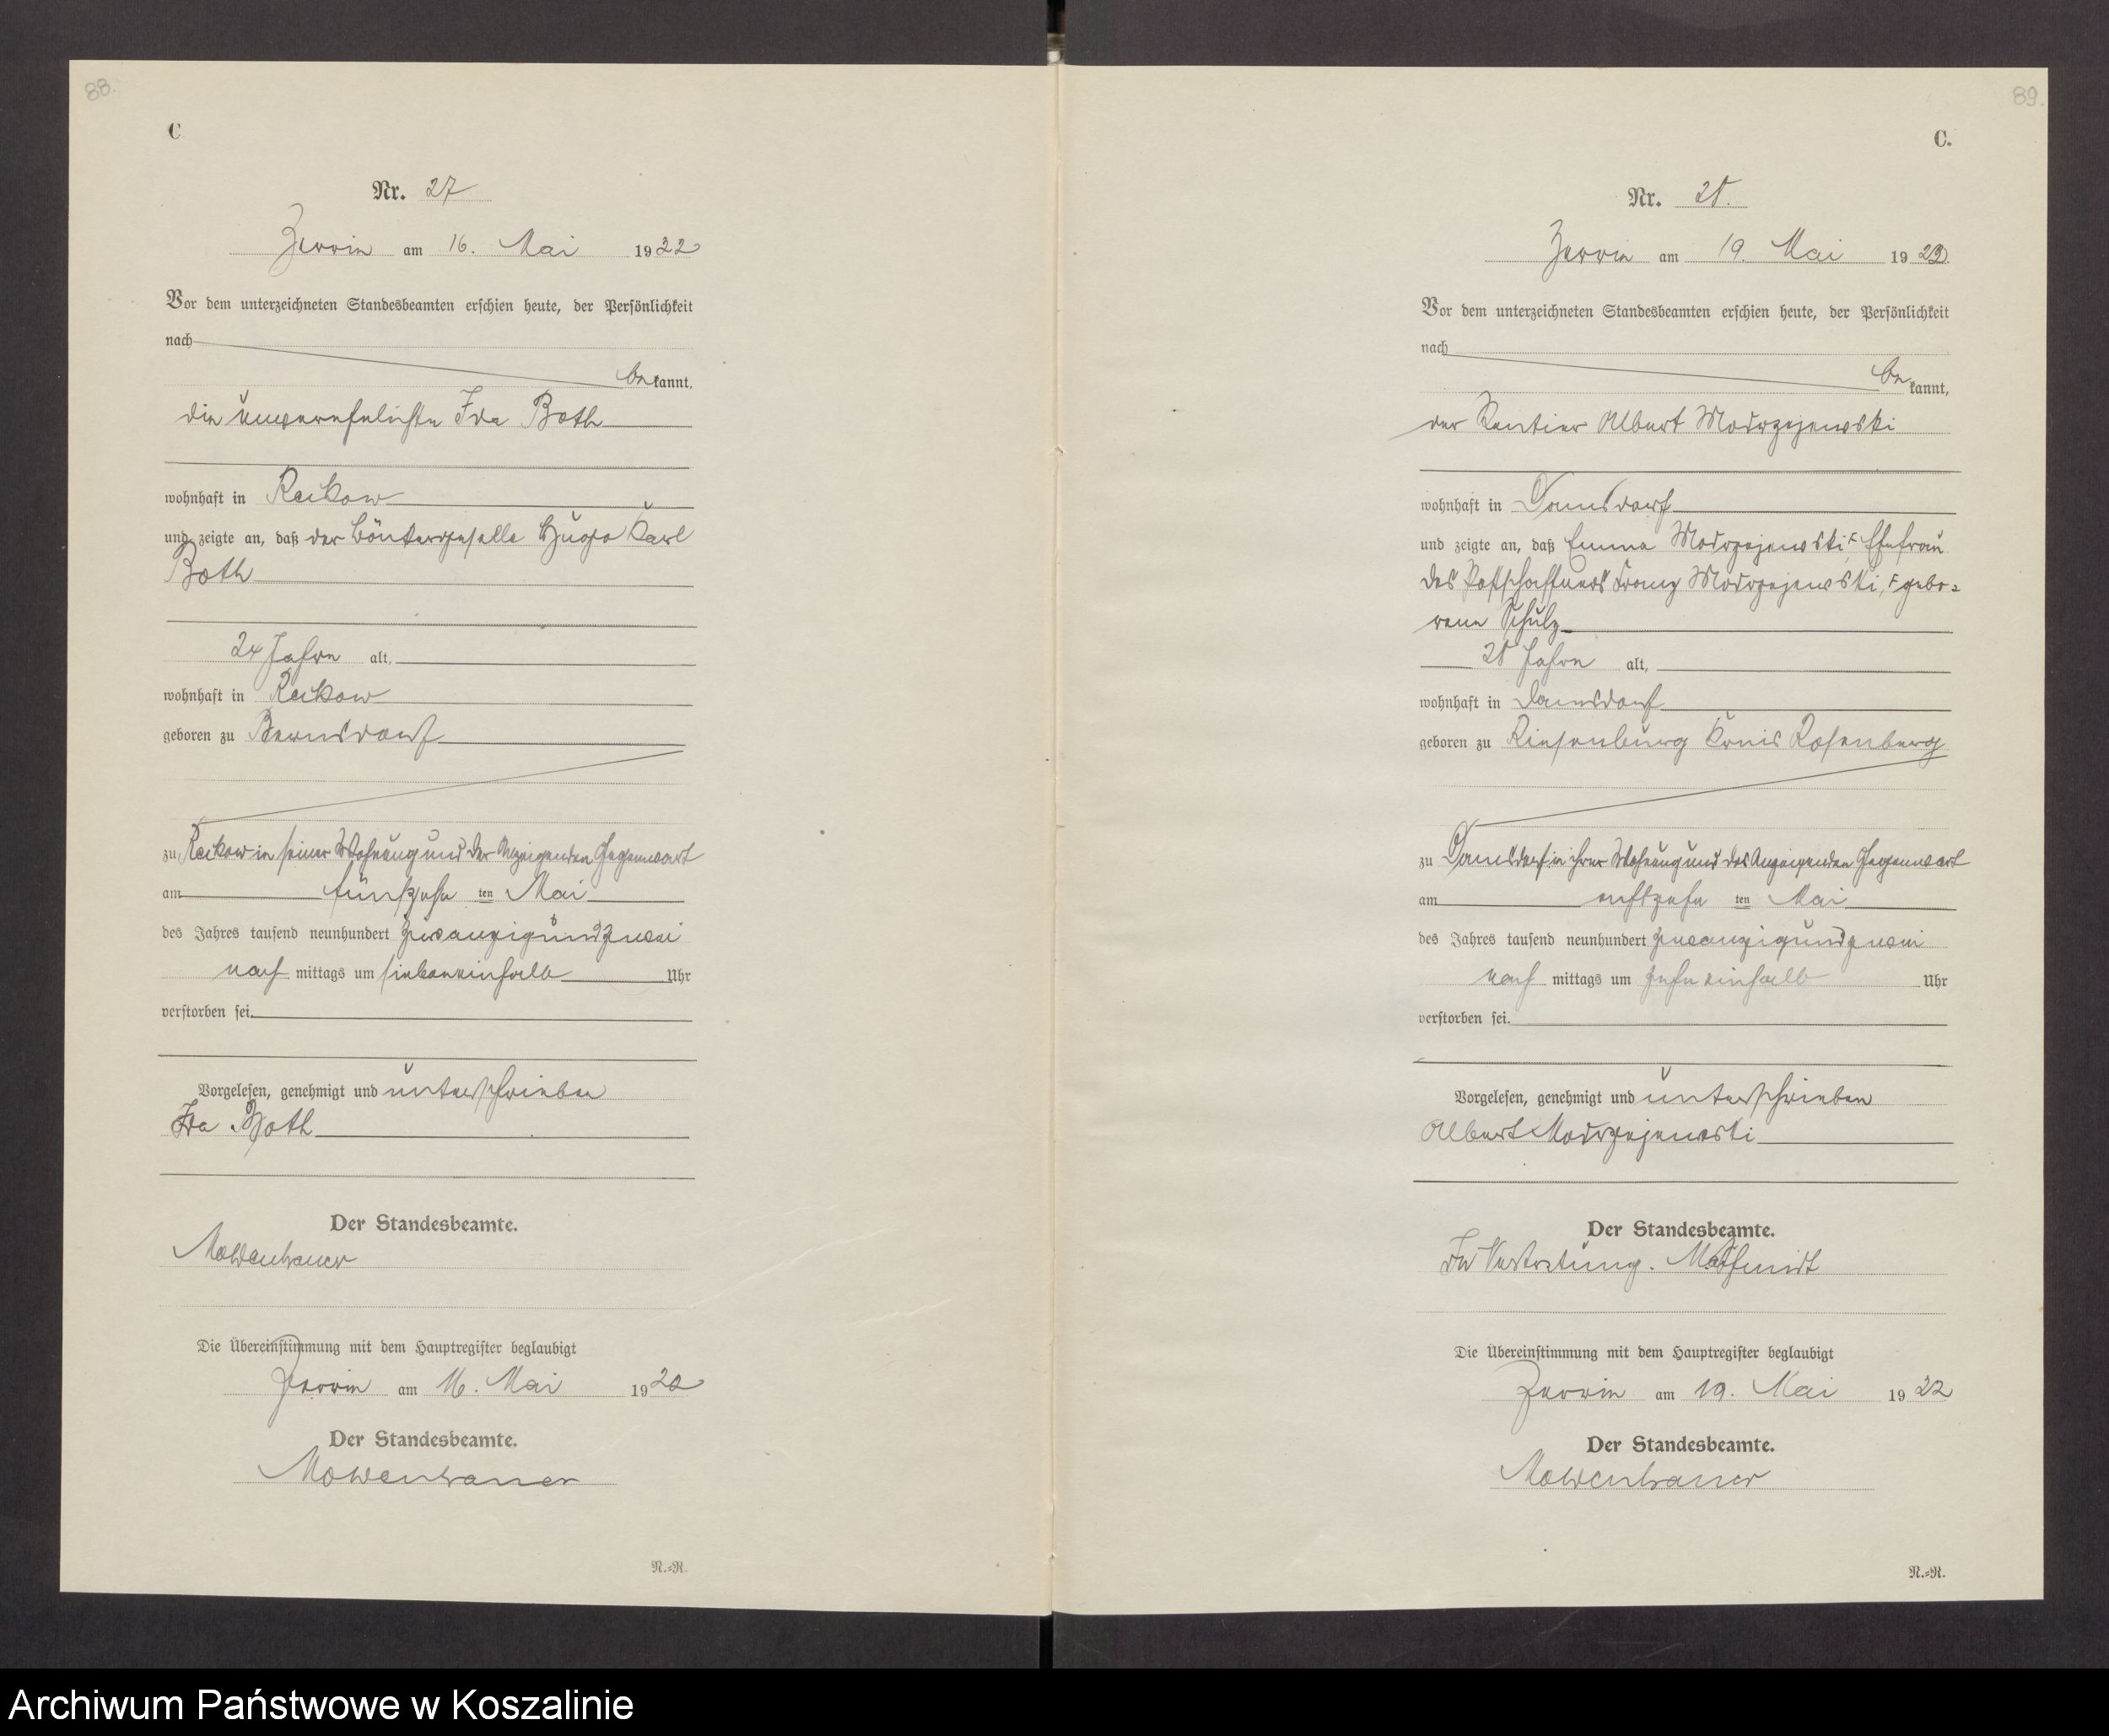 88.
C
Nr. 27
Zerrin am 16. Mai 1922
Vor dem unterzeichneten Standesbeamten erschien heute, der Persönlichkeit
nach
be kannt,
die unverehelichte Ida Both
wohnhaft in Reckow
und zeigte an, daß der Böttchergeselle Hugo Karl
Both
24 Jahre alt,
wohnhaft in Reckow
geboren zu Bernsdorf
zu Reckow in seiner Wohnung und der Anzeigenden Gegenwart
am fünfzehn ten Mai
des Jahres tausend neunhundert zwanzigundzwei
nach mittags um siebeneinhalb Uhr
verstorben sei.
Vorgelesen, genehmigt und unterschrieben
Ida Both
Der Standesbeamte.
Moldenhauer
Die Übereinstimmung mit dem Hauptregister beglaubigt
Zerrin am 16. Mai 1922
Der Standesbeamte.
Moldenhauer
N.=R.
89.
C.
Nr. 28.
Zerrin am 19. Mai 1922.
Vor dem unterzeichneten Standesbeamten erschien heute, der Persönlichkeit
nach
be kannt,
der Rentier Albert Modrzejewski
wohnhaft in Damsdorf
und zeigte an, daß Emma Modrzejewski, Ehefrau
des Postschaffners Franz Modrzejewski, gebo=
rene Schulz
28 Jahre alt,
wohnhaft in Damsdorf
geboren zu Riesenburg Kreis Rosenberg
zu Damsdorf in ihrer Wohnung und des Anzeigenden Gegenwart
am achtzehn ten Mai
des Jahres tausend neunhundert zwanzigundzwei
nach mittags um zehneinhalb Uhr
verstorben sei.
Vorgelesen, genehmigt und unterschrieben
Albert Modrzejewski
Der Standesbeamte.
In Vertretung.
Die Übereinstimmung mit dem Hauptregister beglaubigt
Zerrin am 19. Mai 1922
Der Standesbeamte.
Moldenhauer
N.=R.
Archiwum Państwowe w Koszalinie